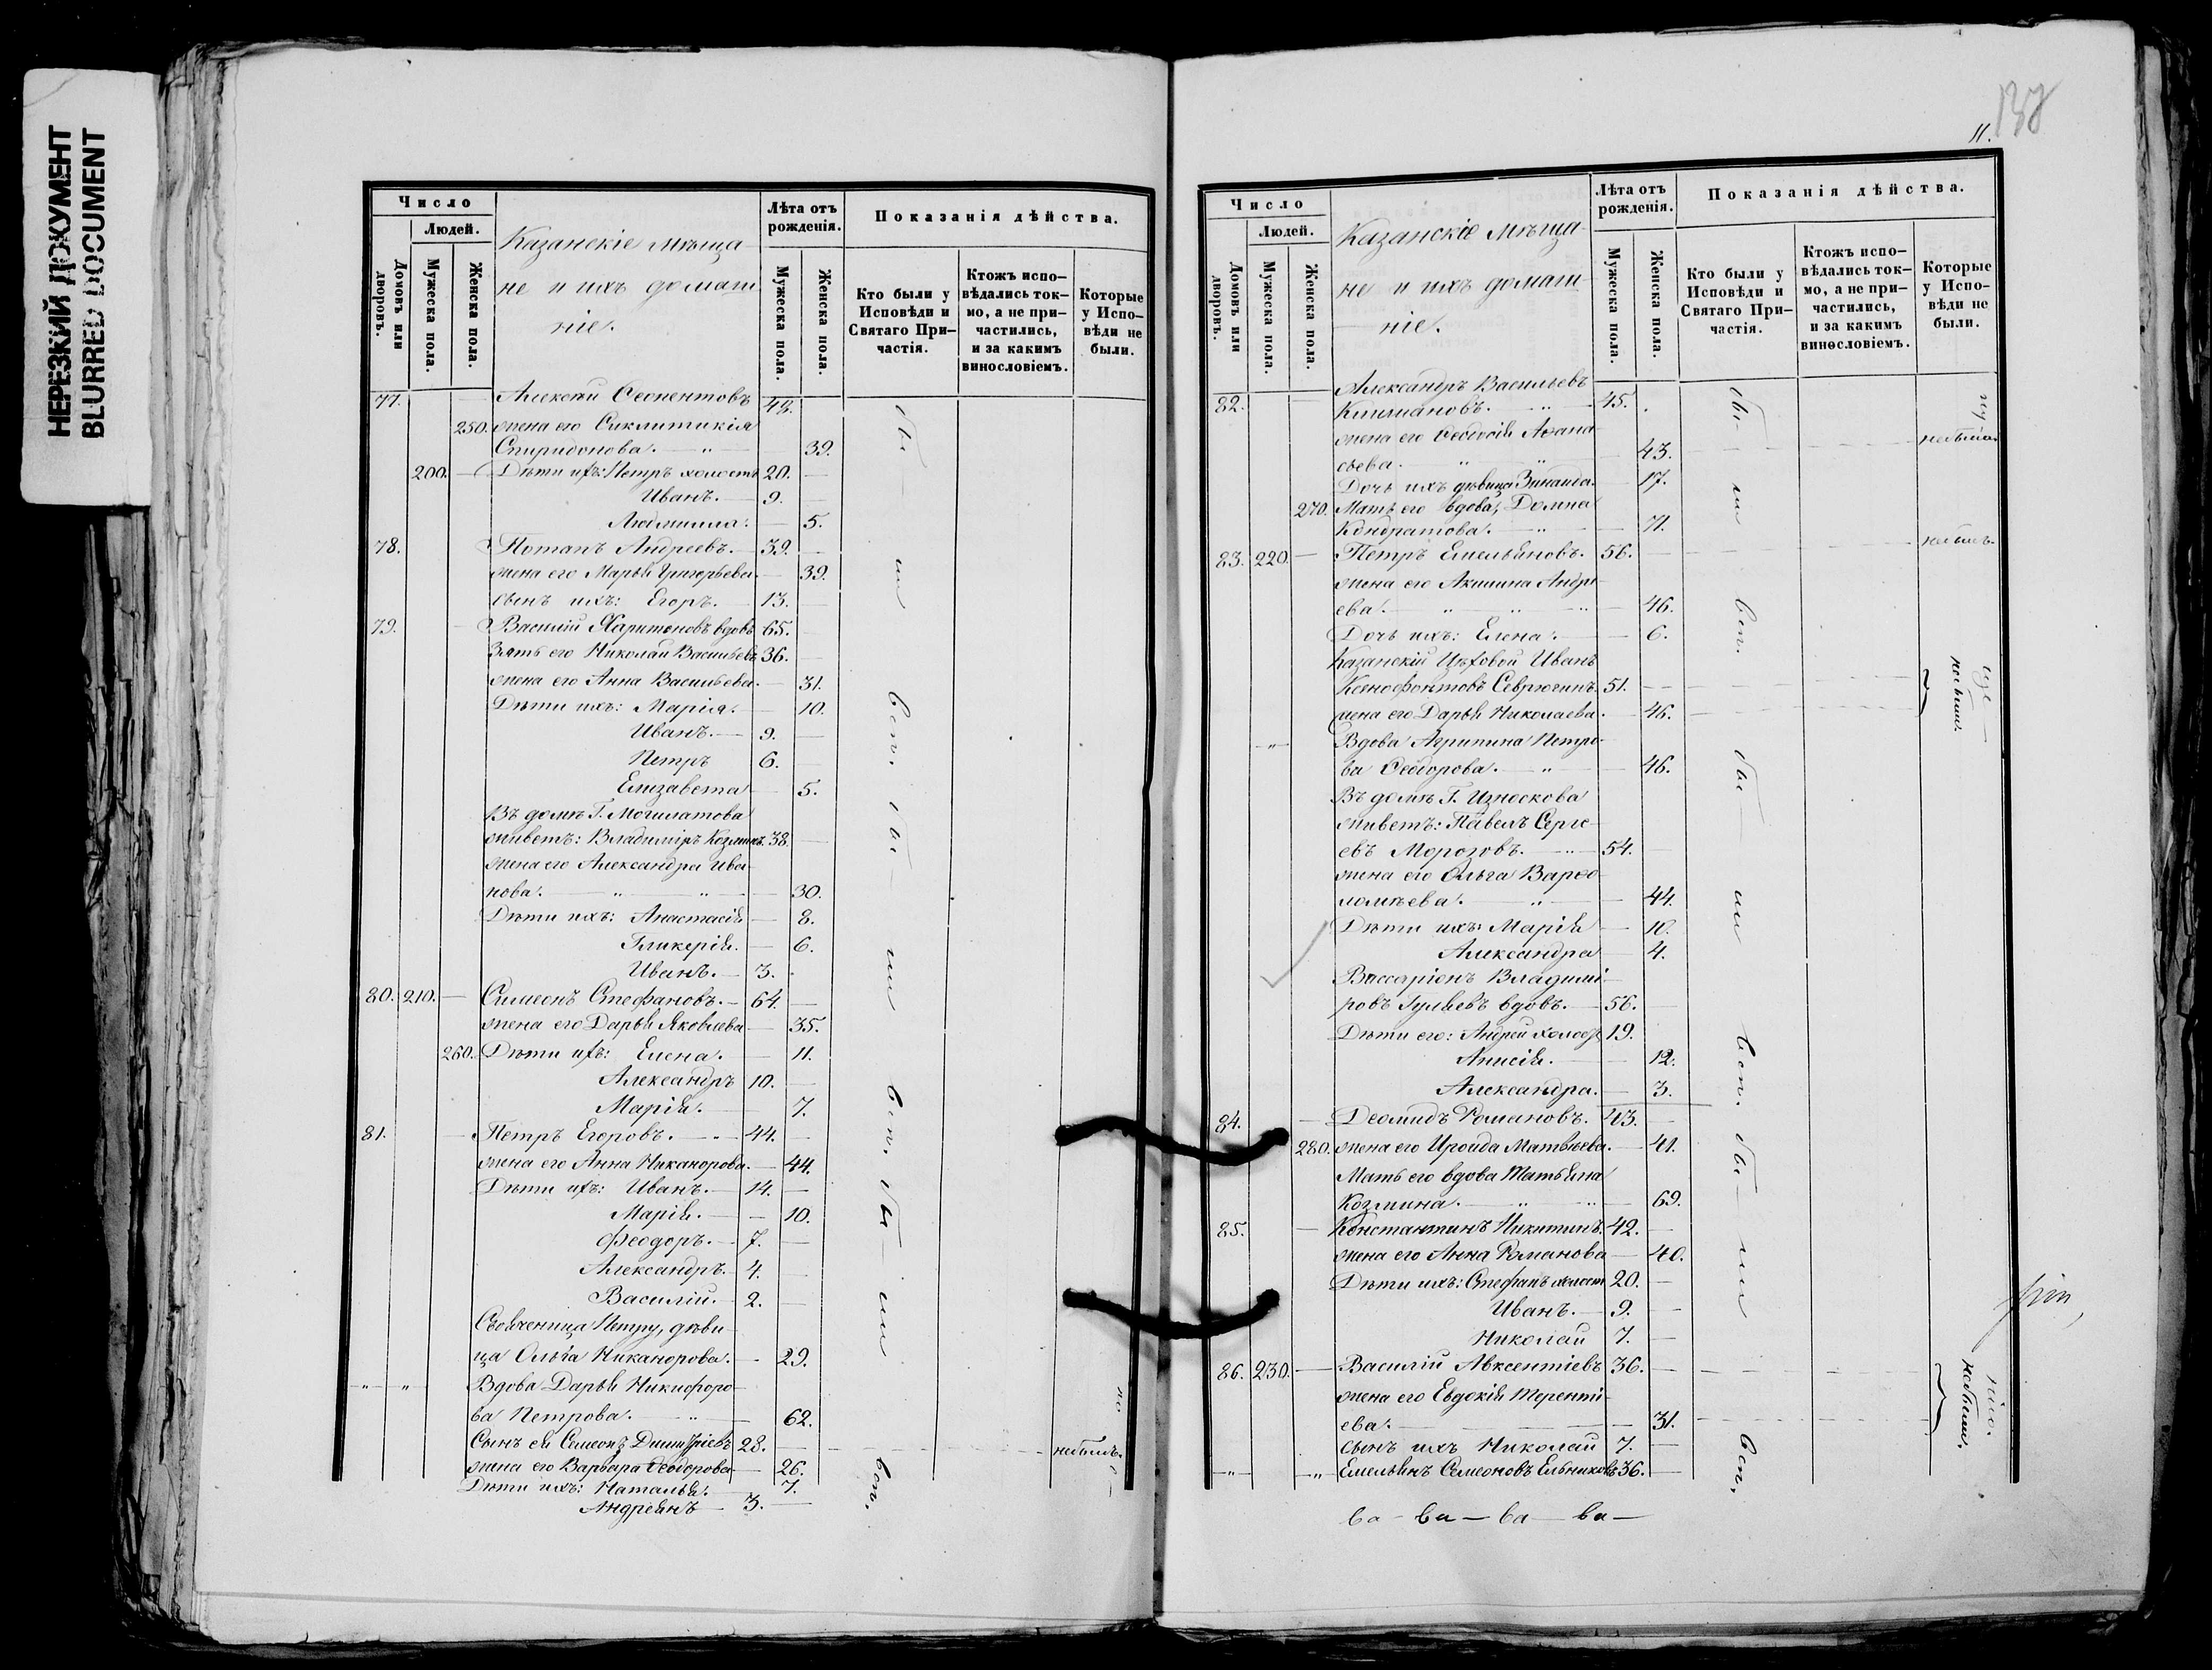 НЕРЕЗКИЙ ДОКУМЕНТ
BLURRED DOCUMENT
Число
Людей.
Домовъ или дворовъ.
Мужеска пола.
Женска пола.
Казанскіе мѣща-
не и ихъ домаш-
ніе.
Лѣта отъ рожденія.
Мужеска пола.
Женска пола.
Показанія дѣйства.
Кто были у Исповѣди и Святаго При-частія.
Ктожъ испо-вѣдались ток-мо, а не при-частились, и за какимъ винословіемъ.
Которые у Испо-вѣди не были.
77. Алексѣй Леонентовъ 42.
250. жена его Сиклитикія
Спиридонова. 39.
200. Дѣти ихъ: Петръ холостъ 20.
Иванъ. 9.
Людмилла. 5.
78. Потапъ Андреевъ. 39.
жена его Марья Григорьева. 39.
сынъ ихъ: Егоръ. 13.
79. Василій Харитоновъ вдовъ 65.
Зять его Николай Васильевъ 36.
жена его Анна Васильева. 31.
Дѣти ихъ: Марія. 10.
Иванъ. 9.
Петръ 6.
Елизавета 5.
Въ домѣ Г. Могилатова
живетъ: Владиміръ Козминъ. 38.
жена его Александра Ива-
нова. 30.
Дѣти ихъ: Анастасія. 8.
Гликерія. 6.
Иванъ. 3.
80. 210. Симеонъ Стефановъ. 64.
жена его Дарья Яковлева 35.
260. Дѣти ихъ: Елена. 11.
Александръ 10.
Марія. 7.
81. Петръ Егоровъ. 44.
жена его Анна Никанорова. 44.
Дѣти ихъ: Иванъ. 14.
Марія. 10.
Феодоръ. 7.
Александръ. 4.
Василій. 2.
Свояченица Петру, дѣви-
ца Ольга Никанорова. 29.
Вдова Дарья Никифоро-
ва Петрова. 62.
Сынъ ея Симеонъ Димитріевъ 28. небылъ.
жена его Варвара Ѳеодорова 26.
Дѣти ихъ: Наталья. 7.
Андреянъ 3.
бы-
ли
вси.
бы-
ли
вси.
бы
ли
вси.
138
11.
Число
Людей.
Домовъ или дворовъ.
Мужеска пола.
Женска пола.
Казанскіе мѣща-
не и ихъ домаш-
ніе.
Лѣта отъ рожденія.
Мужеска пола.
Женска пола.
Показанія дѣйства.
Кто были у Исповѣди и Святаго При-частія.
Ктожъ испо-вѣдались ток-мо, а не при-частились, и за какимъ винословіемъ.
Которые у Испо-вѣди не были.
82. Александръ Васильевъ
45.
жена его Ѳеодосія Аѳана-
сьева. 43. небыла.
Дочь ихъ дѣвица Зинаида. 17.
270. Мать его вдова, Домна
Кондратова. 71.
83. 220. Петръ Емельяновъ. 56. небылъ.
жена его Акилина Андре-
ева. 46.
Дочь ихъ: Елена. 6.
Казанскій Цѣховой Иванъ
Ксенофонтовъ Севрюгинъ. 51.
жена его Дарья Николаева. 46.
небыли.
Вдова Агрипина Петро-
ва Ѳеодорова. 46.
Въ домѣ Г. Износкова
живетъ: Павелъ Серге-
евъ Морозовъ. 54.
жена его Ольга Варѳо-
ломѣева. 44.
Дѣти ихъ: Марія 10.
Александра 4.
Вассаріонъ Владимі-
ровъ Гуляевъ вдовъ. 56.
Дѣти его: Андрей холост 19.
Анисія. 12.
Александра. 3.
84. Деомидъ Романовъ. 43.
280. жена его Ироида Матвѣева. 41.
Мать его вдова Татьяна
Козмина. 69.
85. Константинъ Никитинъ. 42.
жена его Анна Романова 40.
Дѣти ихъ: Стефанъ холост 20.
Иванъ. 9.
Николай 7.
86. 230. Василій Авксентіевъ 36.
жена его Евдокія Теренті-
ева. 31.
небыли.
сынъ ихъ Николай 7.
Емельянъ Семеоновъ Ельниковъ 36.
бы-
ли
вси.
бы-
ли
вси.
бы-
ли
вси.
ва - ва - ва - ва -